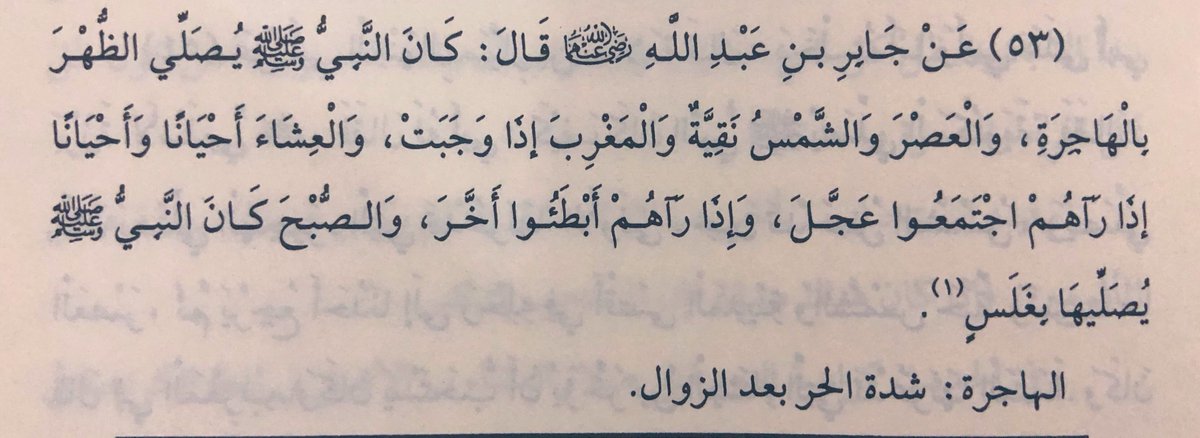 (٥٣) عَنْ جَابِرِ بنِ عَبْدِ اللَّهِ رَضِيَ اللَّهُ عَنْهُمَا قَالَ: كَانَ النَّبِيُّ ﷺ يُصَلِّي الظُّهْرَ
بِالْهَاجِرَةِ، وَالْعَصْرَ وَالشَّمْسُ نَقِيَّةٌ وَالْمَغْرِبَ إذَا وَجَبَتْ، وَالْعِشَاءَ أَحْيَانًا وَأَحْيَانًا
إذَا رَآهُمْ اجْتَمَعُوا عَجَّلَ، وَإِذَا رَآهُمْ أَبْطَئُوا أَخَّرَ، وَالصُّبْحَ كَانَ النَّبِيُّ ﷺ
يُصَلِّيهَا بِغَلَسٍ(١).
الهاجرة: شدة الحر بعد الزوال.